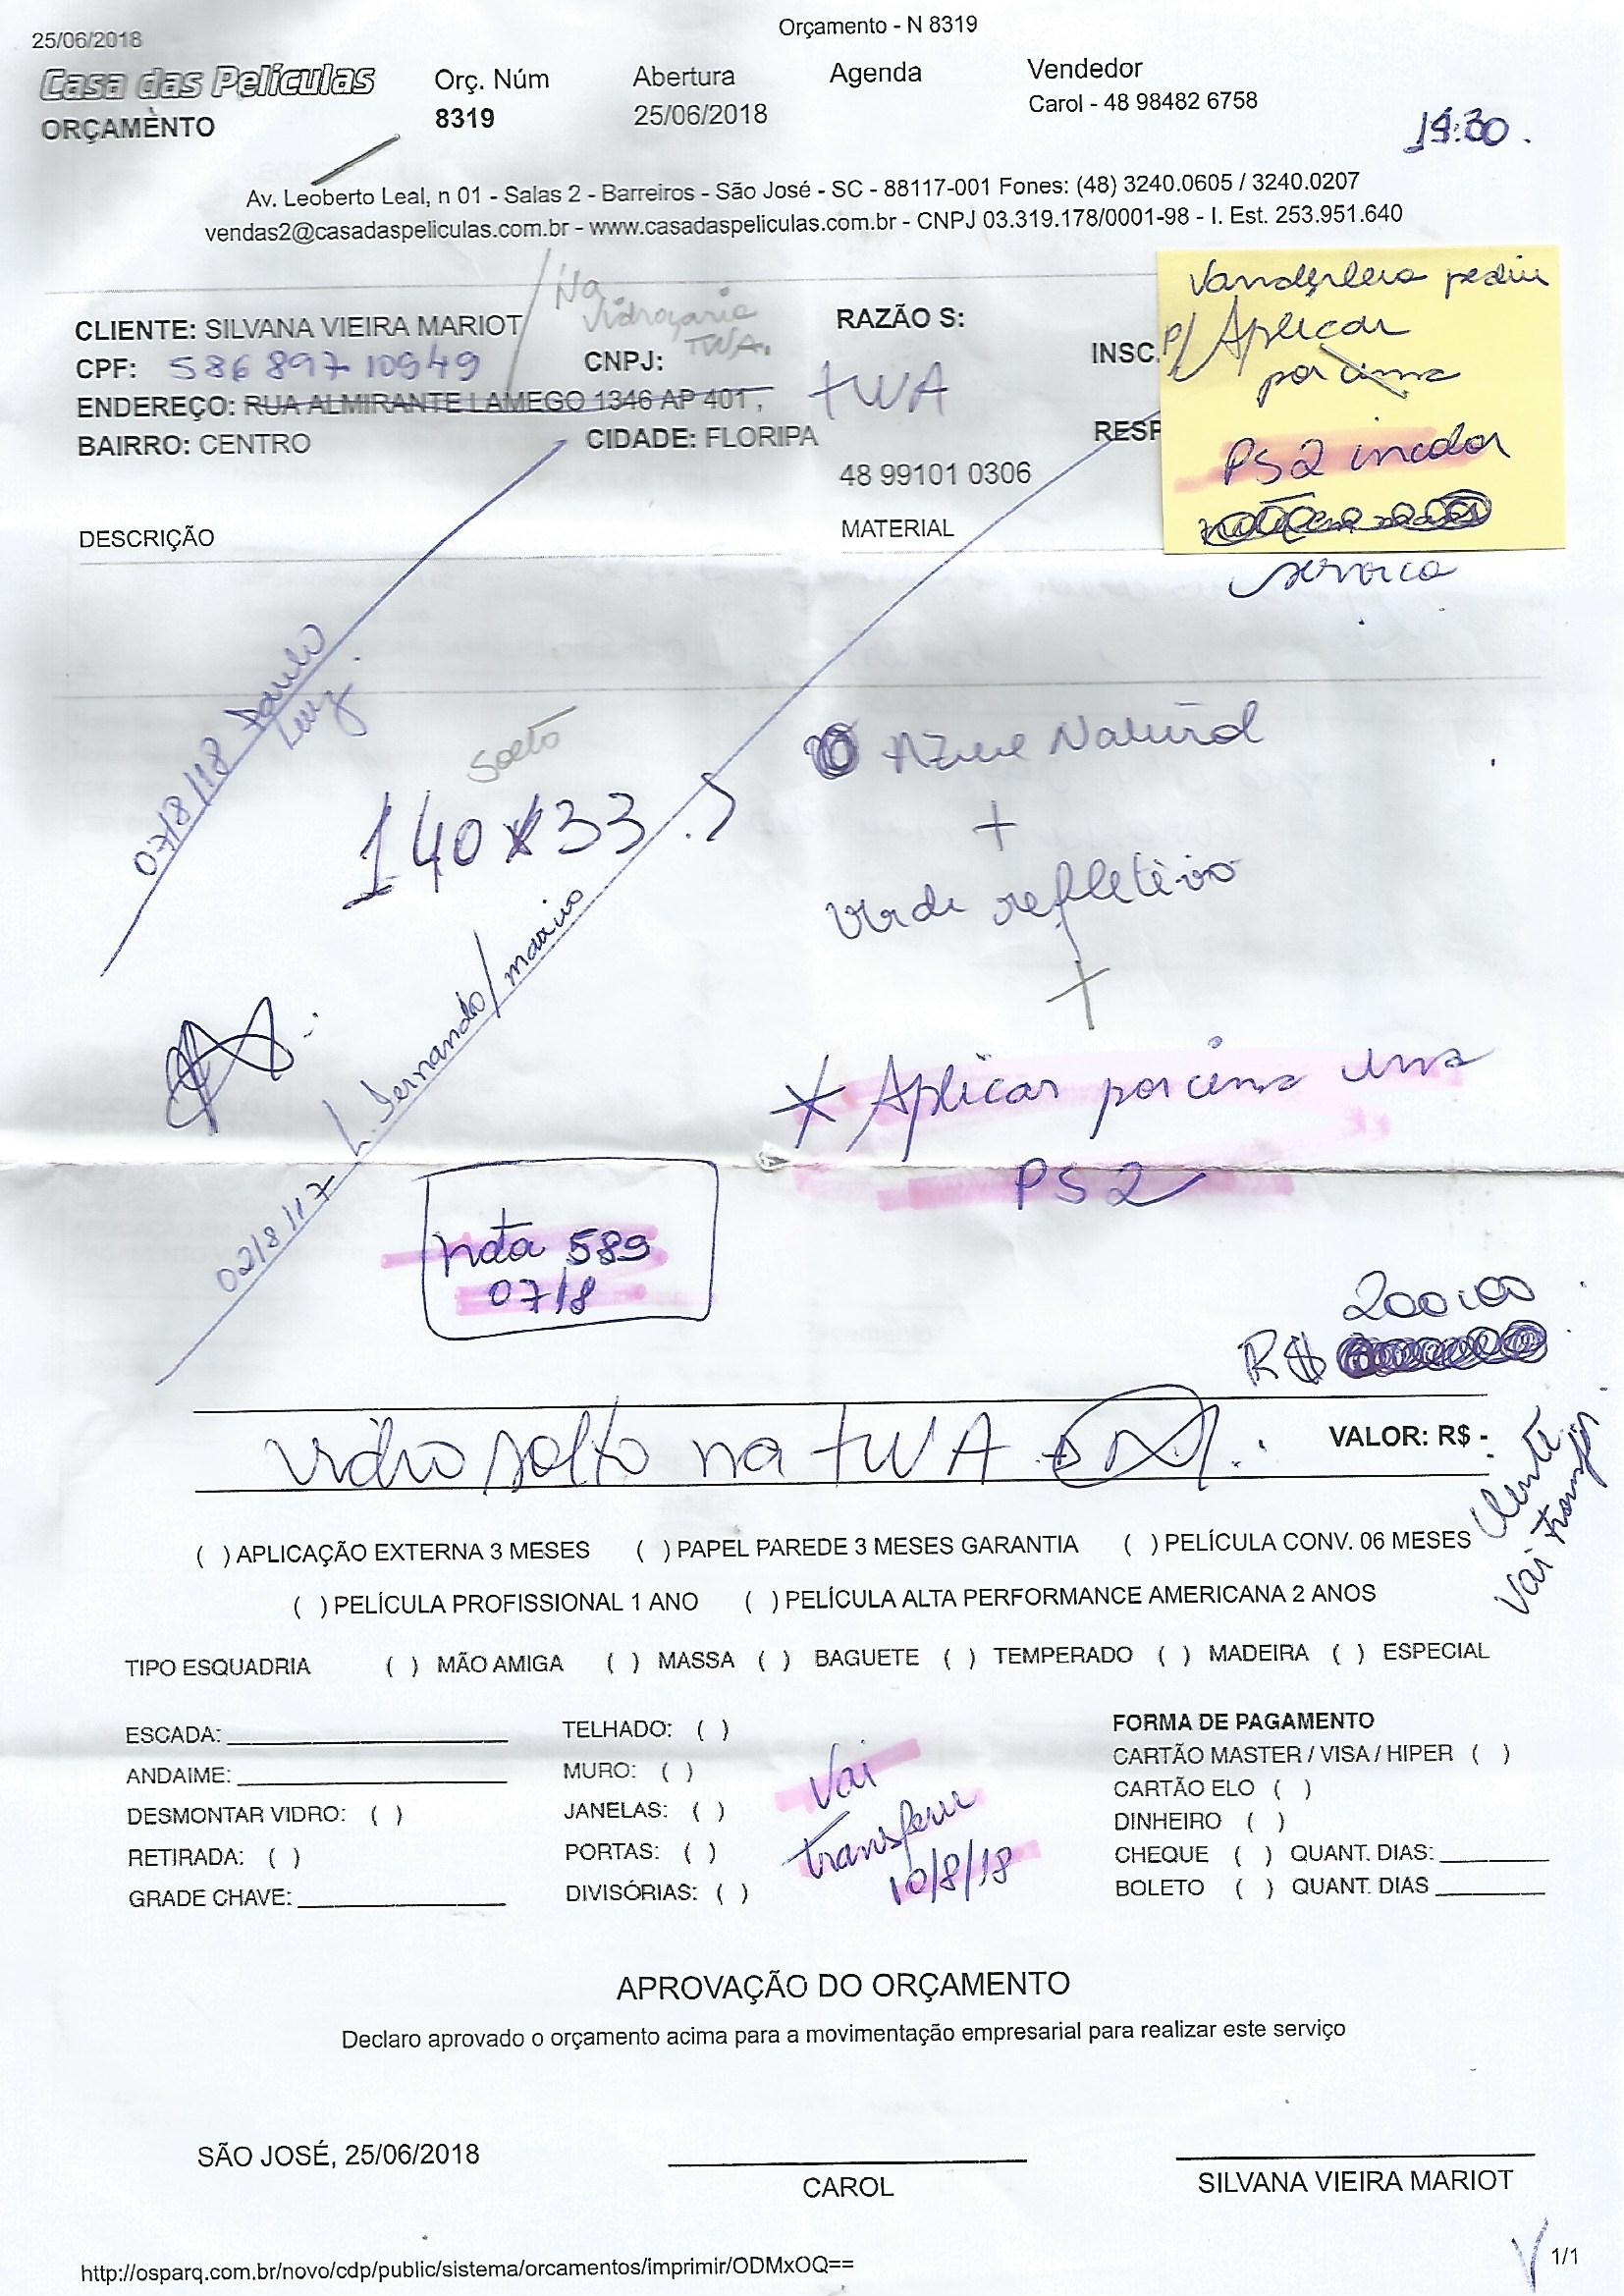 25/06/2018
Orçamento - N 8319
Casa das Películas
ORÇAMENTO
Orç. Núm
8319
Abertura
25/06/2018
Agenda
Vendedor
Carol - 48 98482 6758
Av. Leoberto Leal, n 01 - Salas 2 - Barreiros - São José - SC - 88117-001 Fones: (48) 3240.0605 / 3240.0207
vendas2@casadaspeliculas.com.br - www.casadaspeliculas.com.br - CNPJ 03.319.178/0001-98 - I. Est. 253.951.640
CLIENTE: SILVANA VIEIRA MARIOT
Na
Vidraçaria
TWA.
RAZÃO S:
CPF: 586 897 10949
CNPJ:
TWA
INSC.
ENDEREÇO: RUA ALMIRANTE LAMEGO 1346 AP 401 ,
BAIRRO: CENTRO
CIDADE: FLORIPA
RESP
48 99101 0306
Vanderleia pediu
p/ Aplicar
por cima
PS2 incolor
serviço
DESCRIÇÃO
MATERIAL
07/8/18 Paulo
Luiz
solto
140x33.5
Azul Natural
+
verde refletivo
+
* Aplicar por cima uma
PS2
02/8/17 L. Fernando/
nota 589
07/8
200,00
R$
vidro solto na TWA
VALOR: R$ -
Cliente
vai
( ) APLICAÇÃO EXTERNA 3 MESES ( ) PAPEL PAREDE 3 MESES GARANTIA ( ) PELÍCULA CONV. 06 MESES
( ) PELÍCULA PROFISSIONAL 1 ANO ( ) PELÍCULA ALTA PERFORMANCE AMERICANA 2 ANOS
TIPO ESQUADRIA ( ) MÃO AMIGA ( ) MASSA ( ) BAGUETE ( ) TEMPERADO ( ) MADEIRA ( ) ESPECIAL
ESCADA:
ANDAIME:
DESMONTAR VIDRO: ( )
RETIRADA: ( )
GRADE CHAVE:
TELHADO: ( )
MURO: ( )
JANELAS: ( )
PORTAS: ( )
DIVISÓRIAS: ( )
Vai
transferir
10/8/18
FORMA DE PAGAMENTO
CARTÃO MASTER / VISA / HIPER ( )
CARTÃO ELO ( )
DINHEIRO ( )
CHEQUE ( ) QUANT. DIAS:
BOLETO ( ) QUANT. DIAS
APROVAÇÃO DO ORÇAMENTO
Declaro aprovado o orçamento acima para a movimentação empresarial para realizar este serviço
SÃO JOSÉ, 25/06/2018
CAROL
SILVANA VIEIRA MARIOT
http://osparq.com.br/novo/cdp/public/sistema/orcamentos/imprimir/ODMxOQ==
1/1